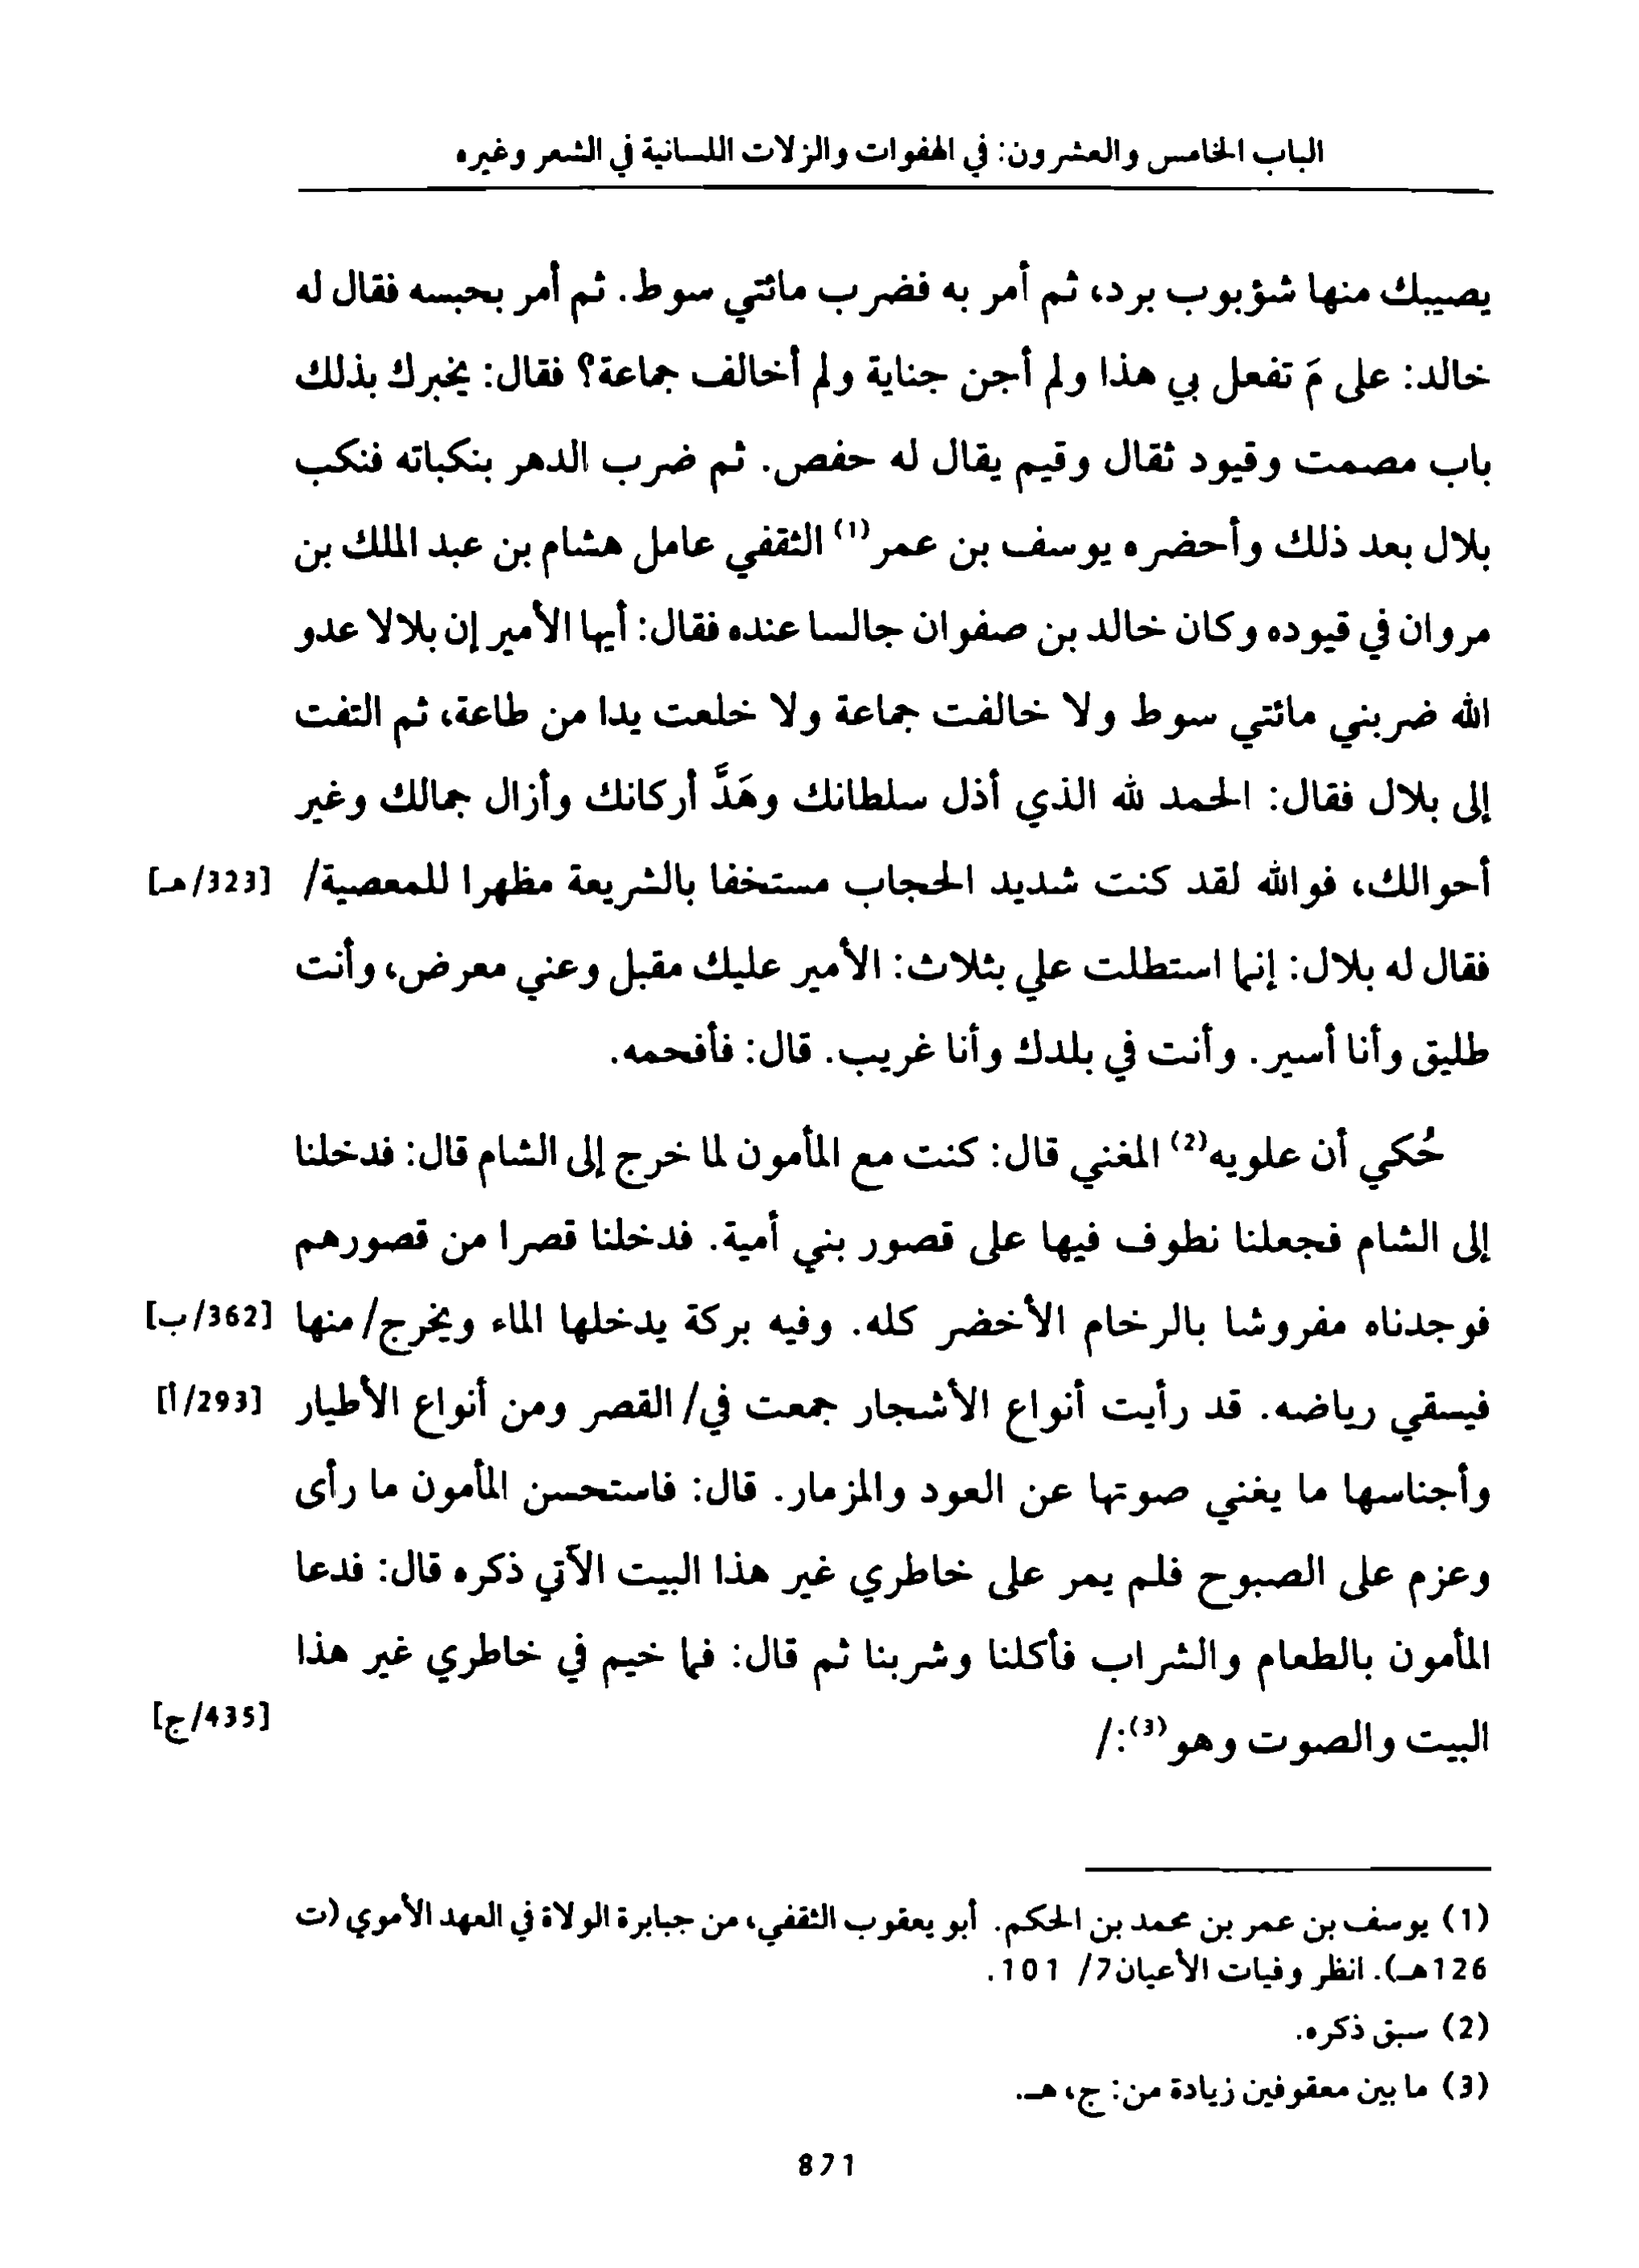 الباب الخامس والعشرون: في الهفوات والزلات اللسانية في الشعر وغيره
يصيبك منها شؤبوب برد، ثم أمر به فضرب مائتي سوط. ثم أمر بحبسه فقال له
خالد: على مَ تفعل بي هذا ولم أجن جناية ولم أخالف جماعة؟ فقال: يخبرك بذلك
باب مصمت وقيود ثقال وقيم يقال له حفص. ثم ضرب الدهر بنكباته فنكب
بلال بعد ذلك وأحضره يوسف بن عمر(1) الثقفي عامل هشام بن عبد الملك بن
مروان في قيوده وكان خالد بن صفوان جالسا عنده فقال: أيها الأمير إن بلالا عدو
الله ضربني مائتي سوط ولا خالفت جماعة ولا خلعت يدا من طاعة، ثم التفت
إلى بلال فقال: الحمد لله الذي أذل سلطانك وهَدَّ أركانك وأزال جمالك وغير
أحوالك، فوالله لقد كنت شديد الحجاب مستخفا بالشريعة مظهرا للمعصية/ [323/هـ]
فقال له بلال: إنما استطلت علي بثلاث: الأمير عليك مقبل وعني معرض، وأنت
طليق وأنا أسير. وأنت في بلدك وأنا غريب. قال: فأفحمه.
حُكي أن علويه(2) المغني قال: كنت مع المأمون لما خرج إلى الشام قال: فدخلنا
إلى الشام فجعلنا نطوف فيها على قصور بني أمية. فدخلنا قصرا من قصورهم
فوجدناه مفروشا بالرخام الأخضر كله. وفيه بركة يدخلها الماء ويخرج/ منها [362/ب]
فيسقي رياضه. قد رأيت أنواع الأشجار جمعت في/ القصر ومن أنواع الأطيار [293/أ]
وأجناسها ما يغني صوتها عن العود والمزمار. قال: فاستحسن المأمون ما رأى
وعزم على الصبوح فلم يمر على خاطري غير هذا البيت الآتي ذكره قال: فدعا
المأمون بالطعام والشراب فأكلنا وشربنا ثم قال: فما خيم في خاطري غير هذا
البيت والصوت وهو(3):/ [435/ج]
(1) يوسف بن عمر بن محمد بن الحكم. أبو يعقوب الثقفي، من جبابرة الولاة في العهد الأموي (ت
126هـ). انظر وفيات الأعيان7/ 101.
(2) سبق ذكره.
(3) ما بين معقوفين زيادة من: ج، هـ.
871